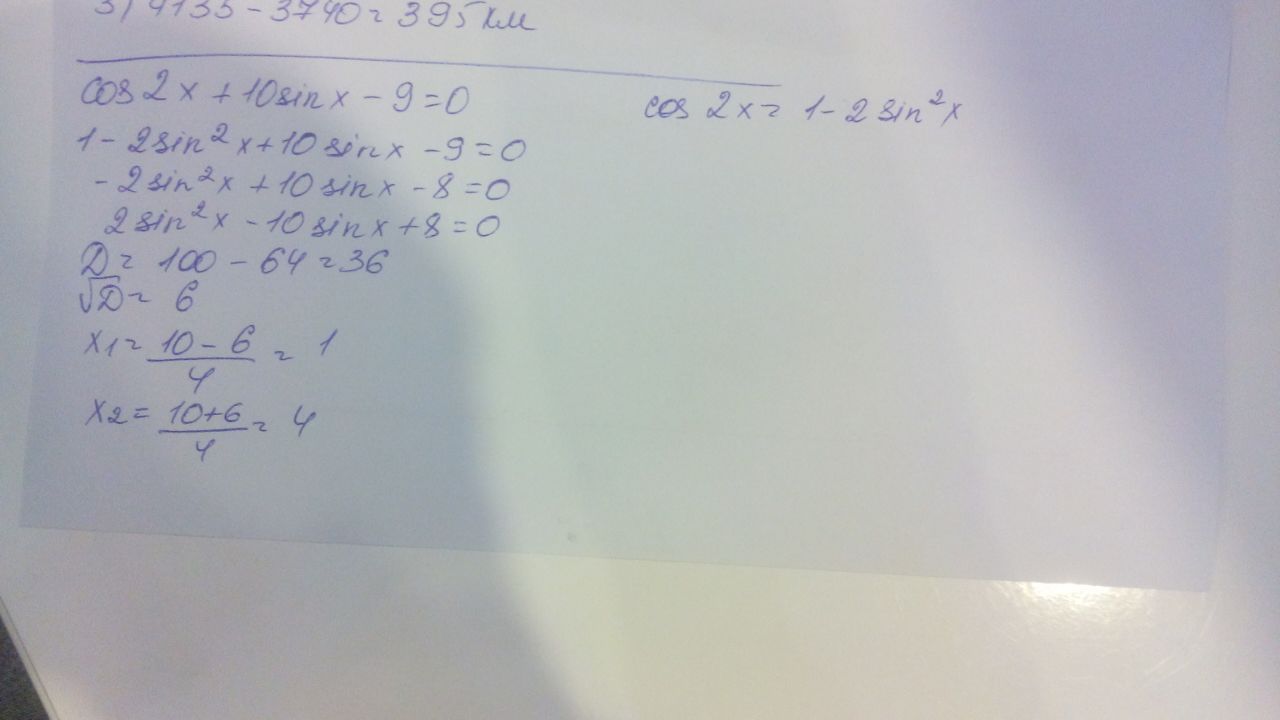 3) 4135 - 3740 = 395 км
cos 2x + 10 sin x - 9 = 0
cos 2x = 1 - 2 sin²x
1 - 2 sin²x + 10 sin x - 9 = 0
- 2 sin²x + 10 sin x - 8 = 0
2 sin²x - 10 sin x + 8 = 0
D = 100 - 64 = 36
√D = 6
x1 = (10 - 6)/4 = 1
x2 = (10+6)/4 = 4